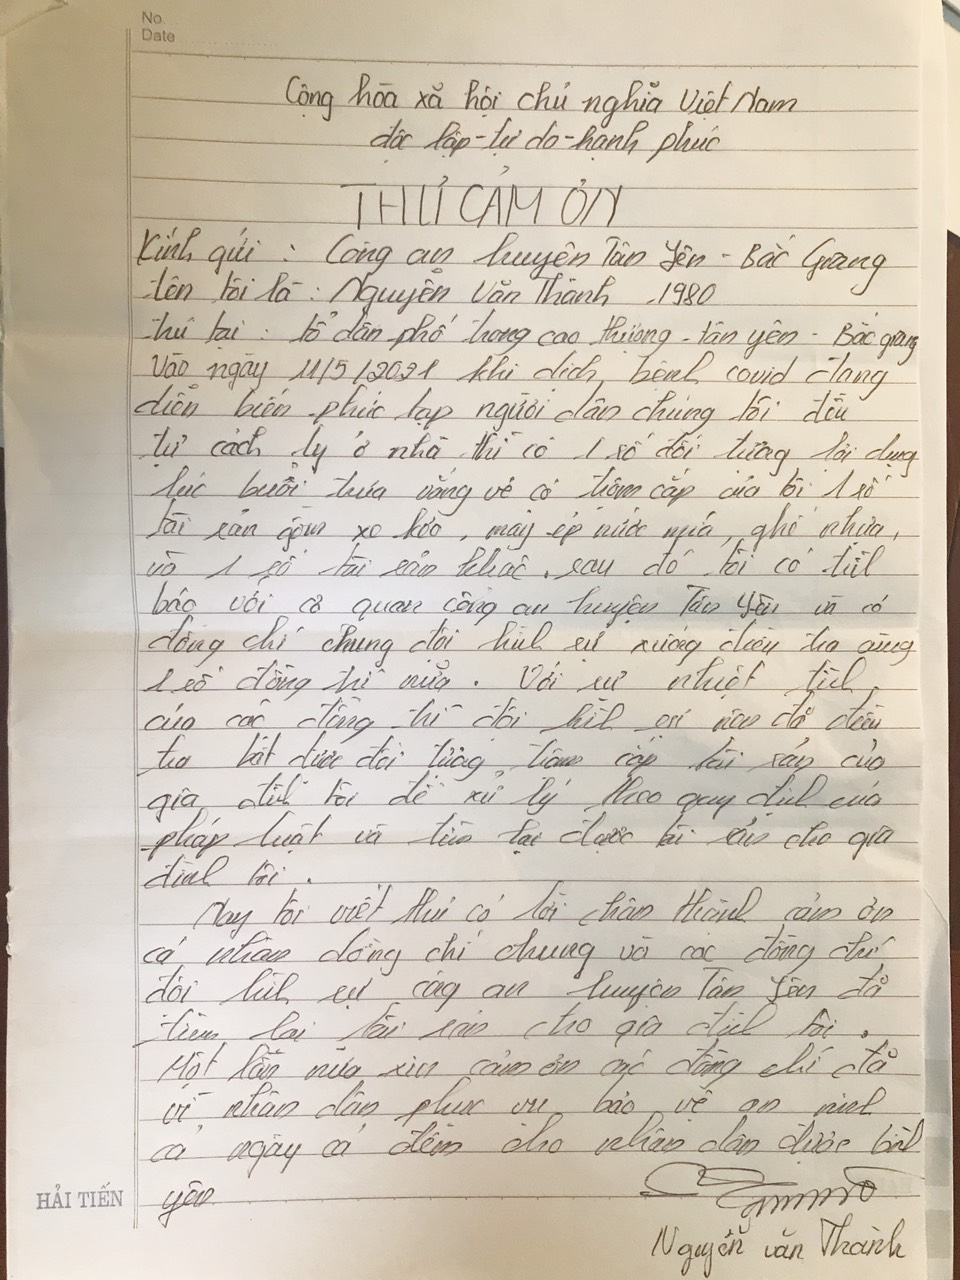 No.
Date
Cộng hòa xã hội chủ nghĩa Việt Nam
độc lập-tự do-hạnh phúc
THƯ CẢM ƠN
Kính gửi : Công an huyện Tân Yên - Bắc Giang
tên tôi là : Nguyễn Văn Thành 1980
thú tại : tổ dân phố trong cao thượng - tân yên - Bắc giang
vào ngày 11/5/2021 khi dịch bệnh covid đang
diễn biến phức tạp người dân chúng tôi đều
tự cách ly ở nhà thì có 1 số đối tượng lợi dụng
lúc buổi trưa vắng vẻ có trộm cắp của tôi 1 số
tài sản gồm xe kéo, máy ép nước mía, ghế nhựa,
và 1 số tài sản khác. sau đó tôi có trình
báo với cơ quan công an huyện Tân Yên và có
đồng chí chung đội hình sự xuống điều tra cùng
1 số đồng chí nữa. Với sự nhiệt tình
của các đồng chí đội hình sự nên đã điều
tra bắt được đối tượng trộm cắp tài sản của
gia đình tôi để xử lý theo quy định của
pháp luật và tìm lại được tài sản cho gia
đình tôi.
Nay tôi viết thư có lời chân thành cảm ơn
cá nhân đồng chí chung và các đồng chí
đội hình sự công an huyện Tân Yên đã
tìm lại tài sản cho gia đình tôi.
Một lần nữa xin cảm ơn các đồng chí đã
vì nhân dân phục vụ bảo vệ an ninh
cả ngày cả đêm cho nhân dân được bình
yên
HẢI TIẾN
Nguyễn văn Thành